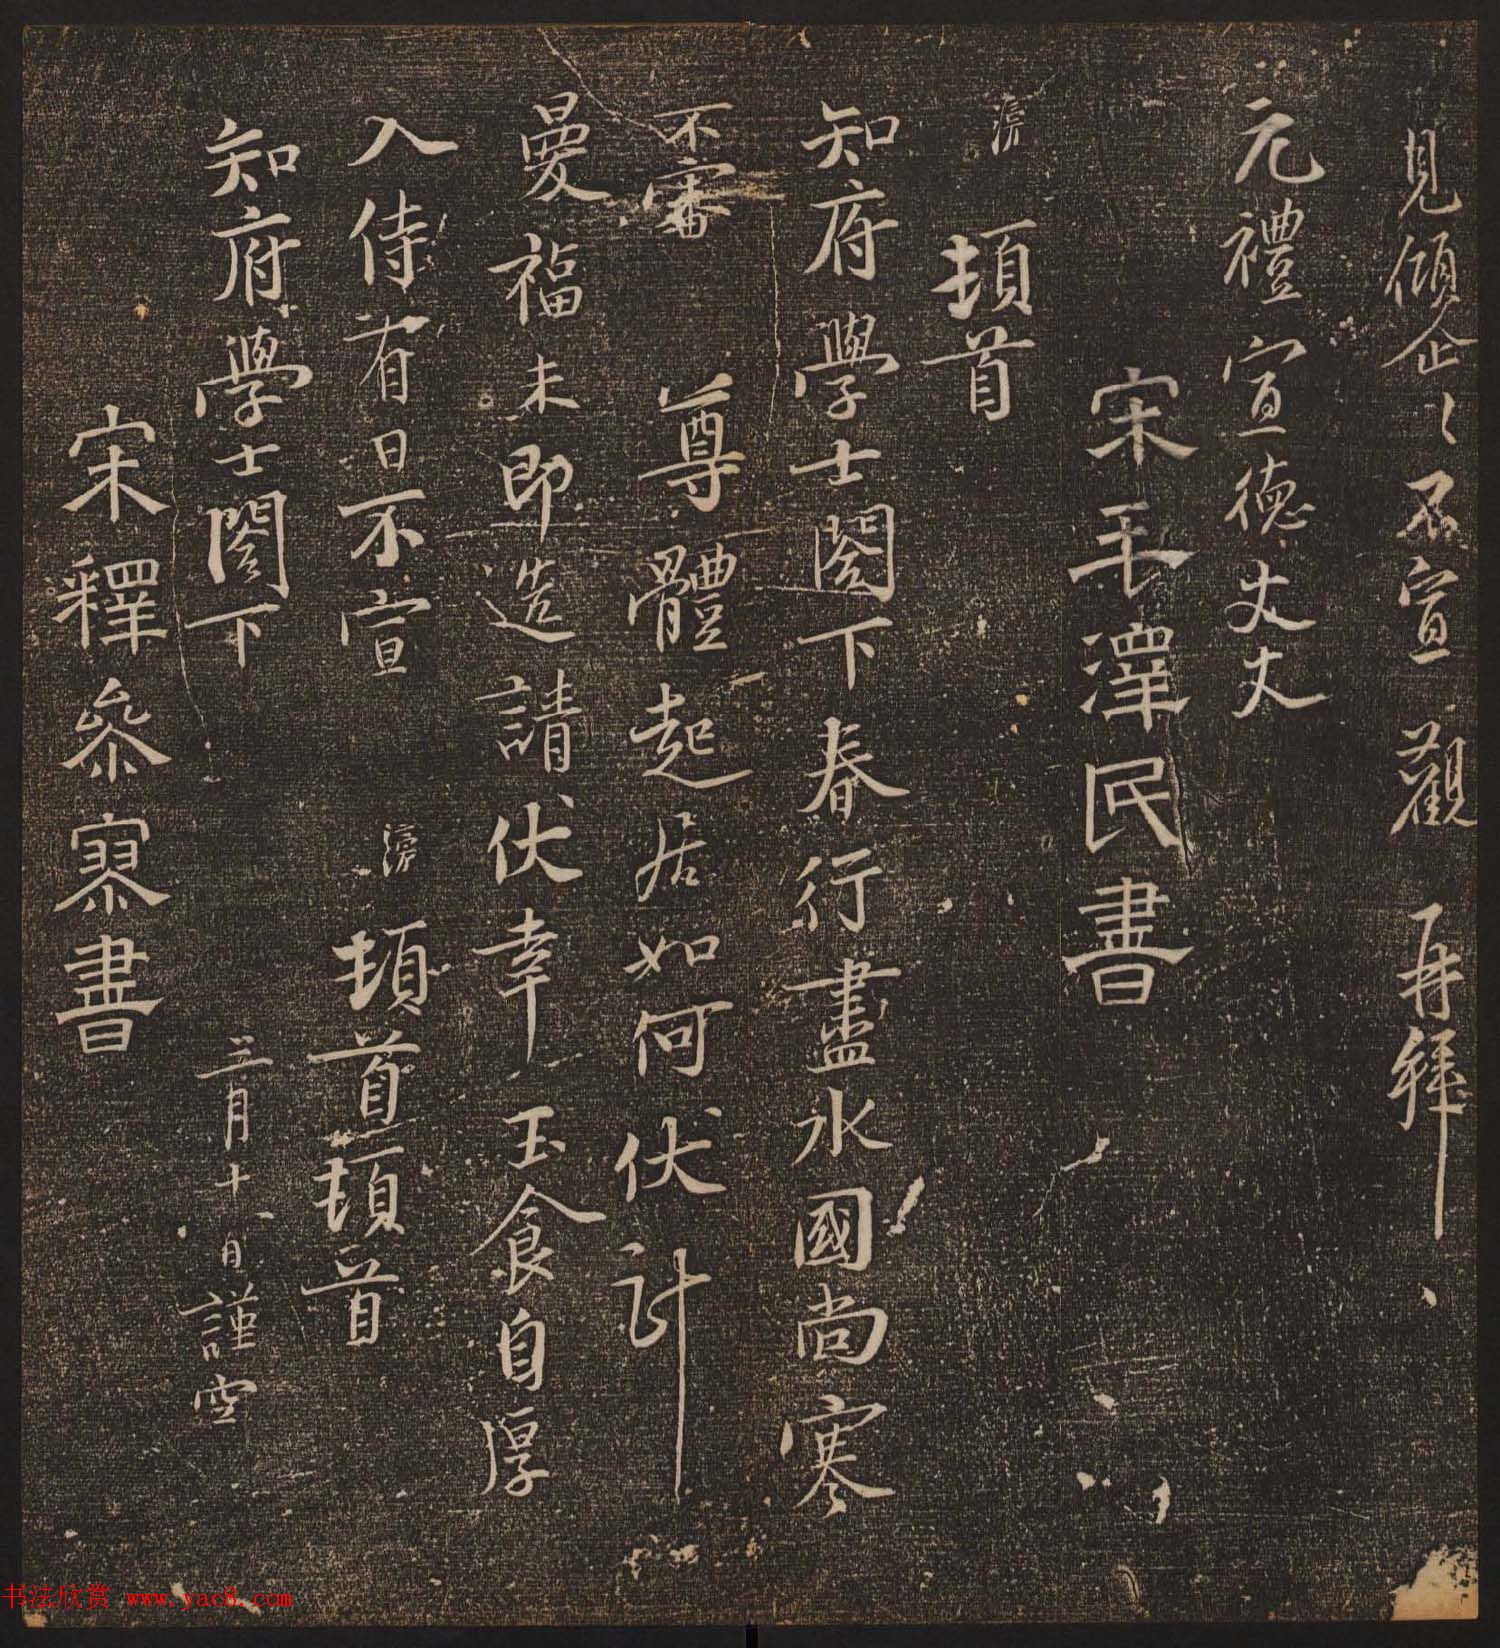 見傾企〻不宣觀再拜
元禮宣德丈丈
宋毛澤民書
滂頓首
知府學士閣下春行盡水國尚寒
不審尊體起居如何伏計
曼福未即造請伏幸玉食自厚
入侍有日不宣
滂頓首頓首
知府學士閣下
三月十一日謹空
宋釋參寥書
书法欣赏 www.yac8.com